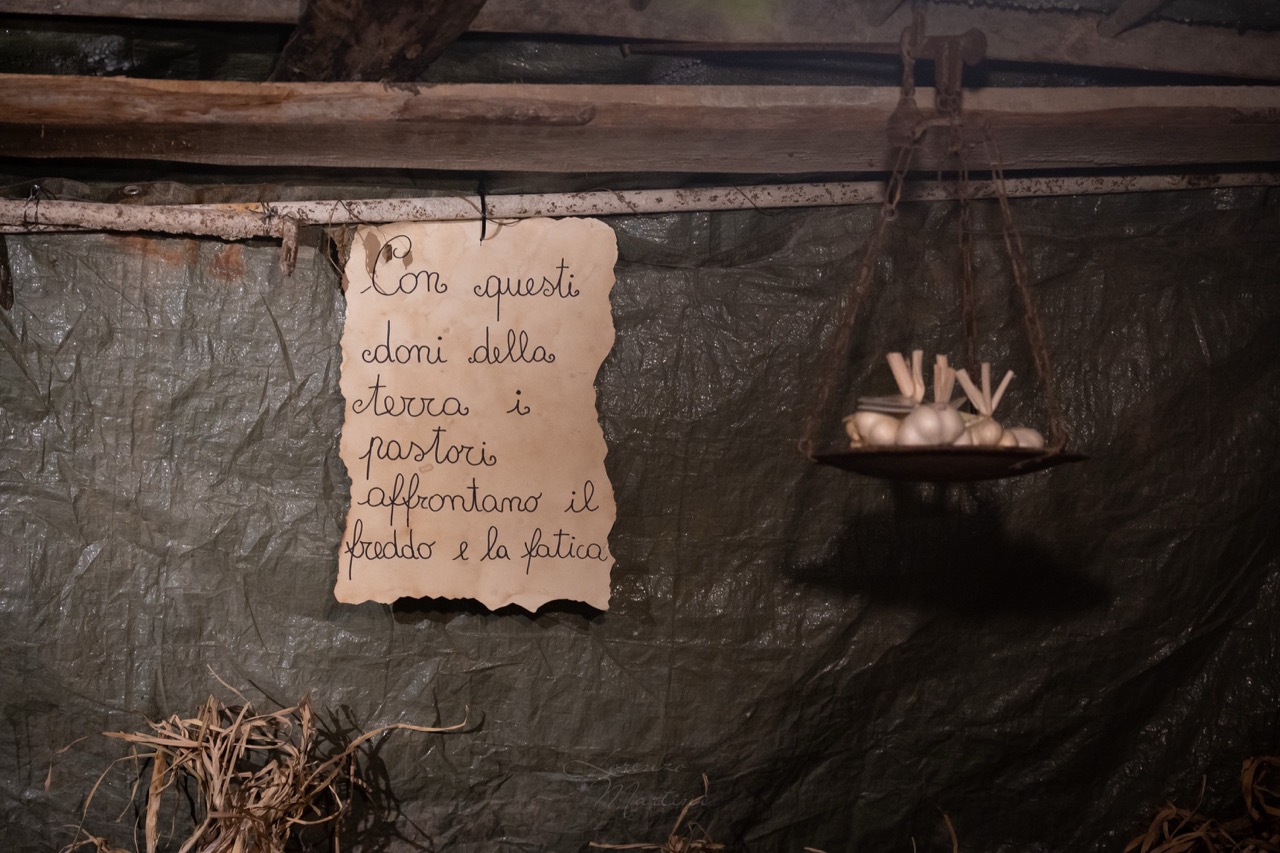 Con questi
doni della
terra i
pastori
affrontano il
freddo e la fatica